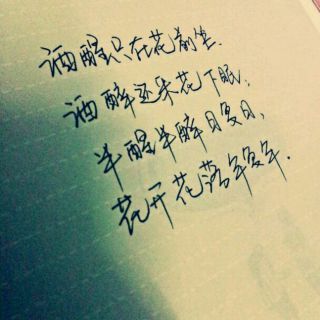 酒醒只在花前坐.
酒醉还来花下眠.
半醒半醉日复日、
花开花落年复年.